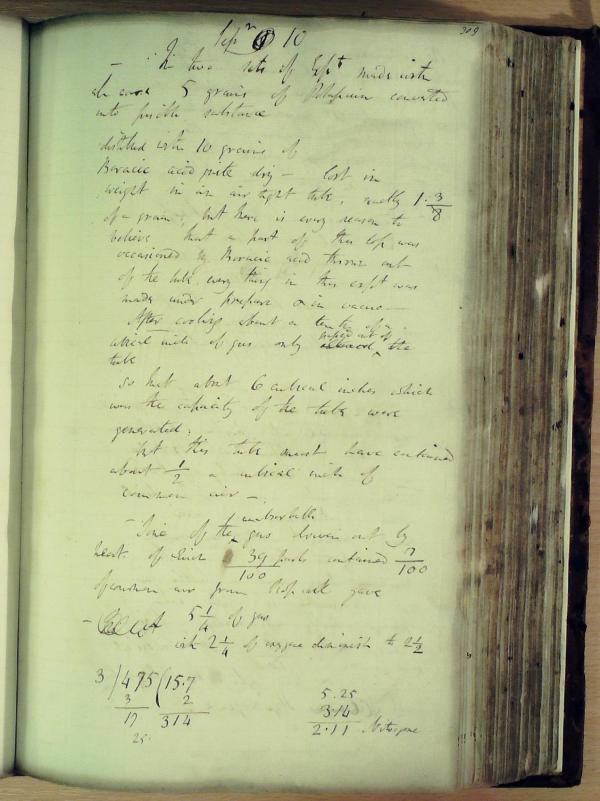 309
Sepr 10
— In two sets of Expt made with
5 grains of Potassium converted
into fusible substance
distilled with 10 grains of
Boracic acid quite dry — lost in
weight in an air tight tube, really 1. 3/8
of a grain, but there is every reason to
believe that a part of this loss was
occasioned by Boracic acid thrown out
of the tube, every thing in this expt was
made under pressure & in vacuo —
After cooling about a tenth of a
cubical inch of gas only rushed out of the
tube
so that about 6 cubical inches which
was the capacity of the tube were
generated.
but this tube must have contained
about 1/2 a cubical inch of
common air —
— Some of the unabsorbable gas driven out by
heat of which 39/100 parts contained 7/100
of common air from
— 5 1/4 of gas
with 2 1/4 of oxygene diminish to 2 1/2
3 ) 475 ( 15.7
3 2
17 314
25.
5.25
3.14
2.11 Nitrogene